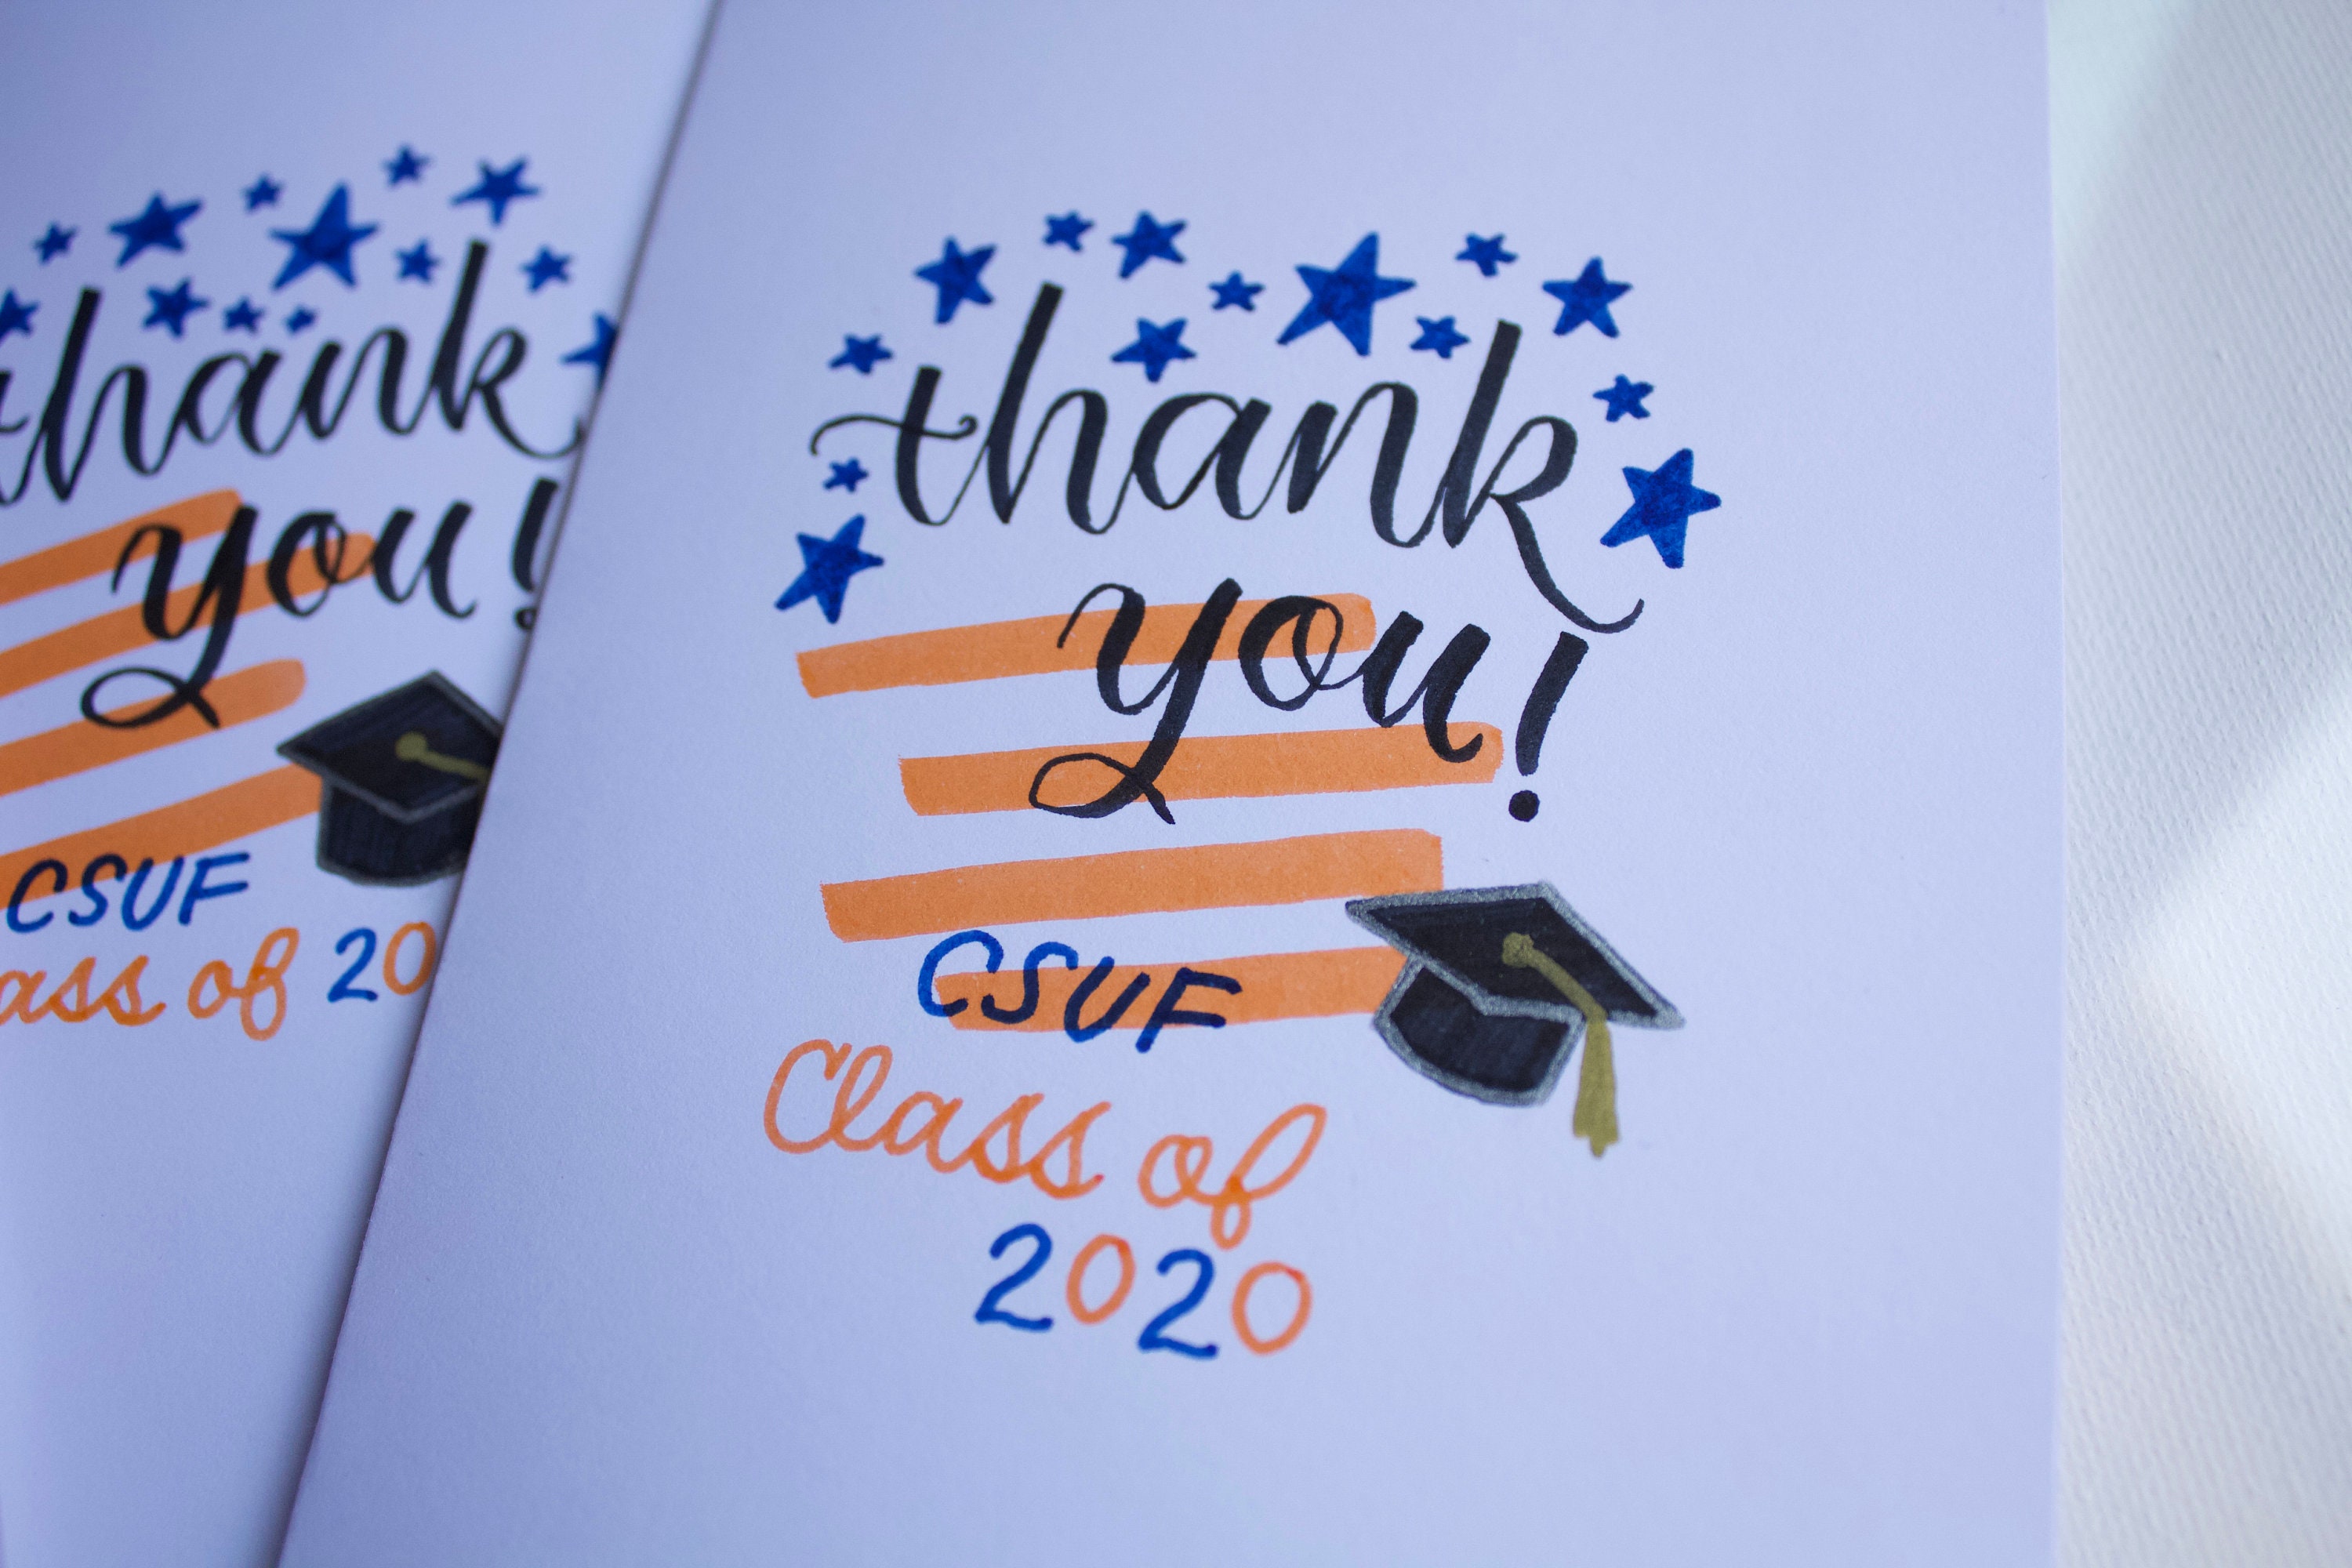 thank
you!
CSUF
Class of
2020
thank
you!
CSUF
ass of 20